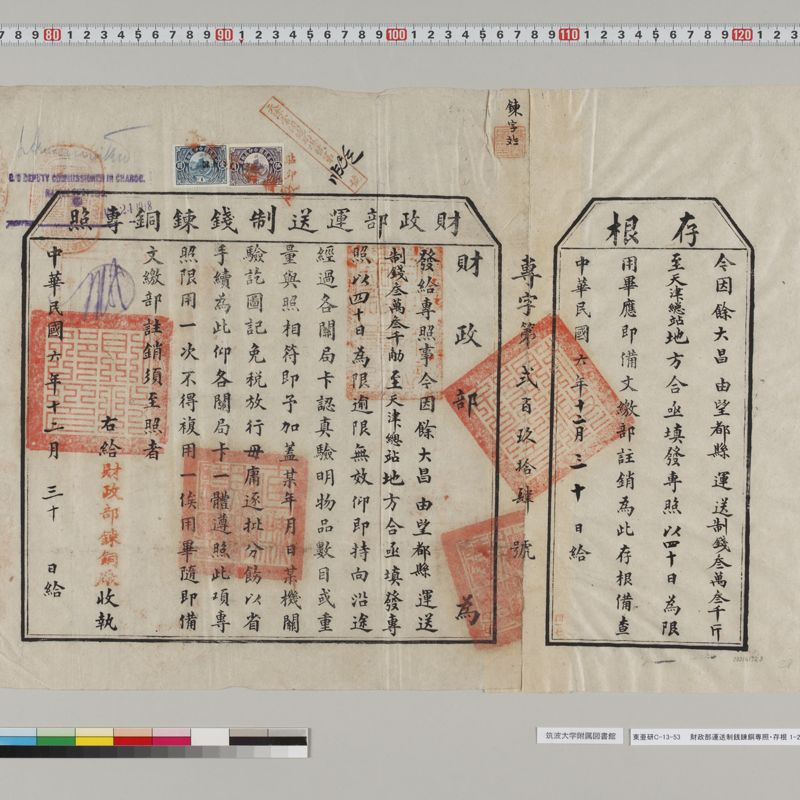 存根
今因餘大昌由望都縣運送制錢叁萬叁千斤
至天津總站地方合亟填發專照以四十日為限
用畢應即備文繳部註銷為此存根備查
中華民國六年十二月三十日給
專字第貳百玖拾肆號
財政部運送制錢鍊銅專照
財政部為
發給專照事今因餘大昌由望都縣運送
制錢叁萬叁千觔至天津總站地方合亟填發專
照以四十日為限逾限無效仰即持向沿途
經過各關局卡認真驗明物品數目或重
量與照相符即予加蓋某年月日某機關
驗訖圖記免稅放行毋庸逐批分飭以省
手續為此仰各關局卡一體遵照此項專
照限用一次不得複用一俟用畢隨即備
文繳部註銷須至照者
右給財政部鍊銅廠收執
中華民國六年十二月三十日給
DEPUTY COMMISSIONER IN CHARGE.
筑波大学附属図書館
東亜研C-13-53 財政部運送制銭錬銅専照・存根 1-2